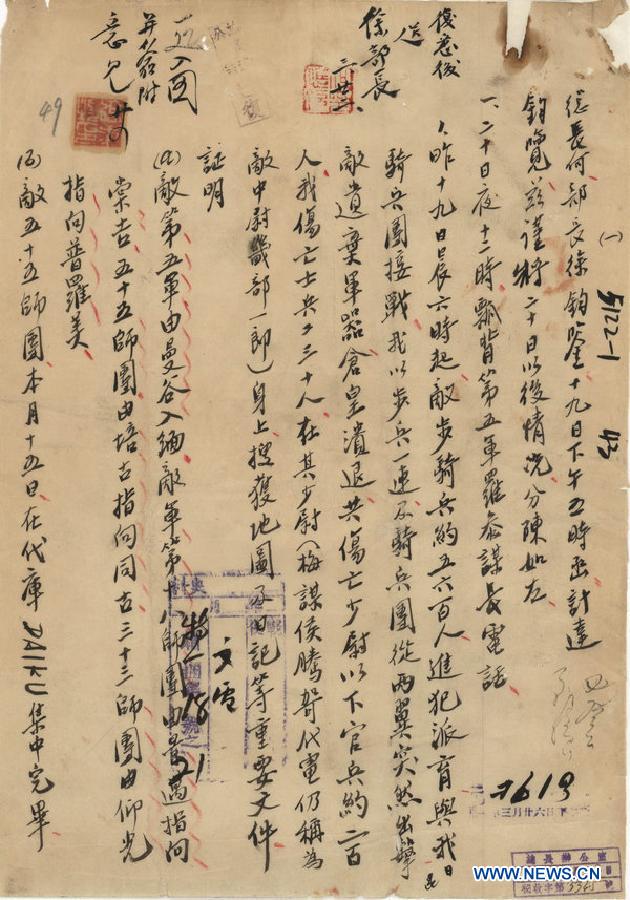 (一)
5172-1
43
總長何部長徐鈞鑒十九日下午五時函計達
鈞覽茲謹將二十日以後情況分陳如左
一、二十日夜十二時飄背第五軍羅參謀長電話
1、昨十九日晨六時起敵步騎兵約五六百人進犯派育與我
騎兵團接戰我以步兵一連及騎兵團從兩翼突然出擊
敵遺棄軍器倉皇潰退共傷亡少尉以下官兵約二百
人我傷亡士兵二三十人在其少尉(梅謀侯騰哿代電仍稱為
敵中尉畿部一郎)身上搜獲地圖及日記等重要文件
証明
(a)敵第五軍由曼谷入緬敵軍第十八師團由景邁指向
棠吉五十五師團由培古指向同古三十三師團由仰光
指向普羅美
(b)敵五十五師團本月十五日在代庫DAIKU集中完畢
復卷後
送
徐部長
三、廿二
意見
49
特一18
21
3619
三月廿六日
總長辦公室
5345
號
新华网
WWW.NEWS.CN